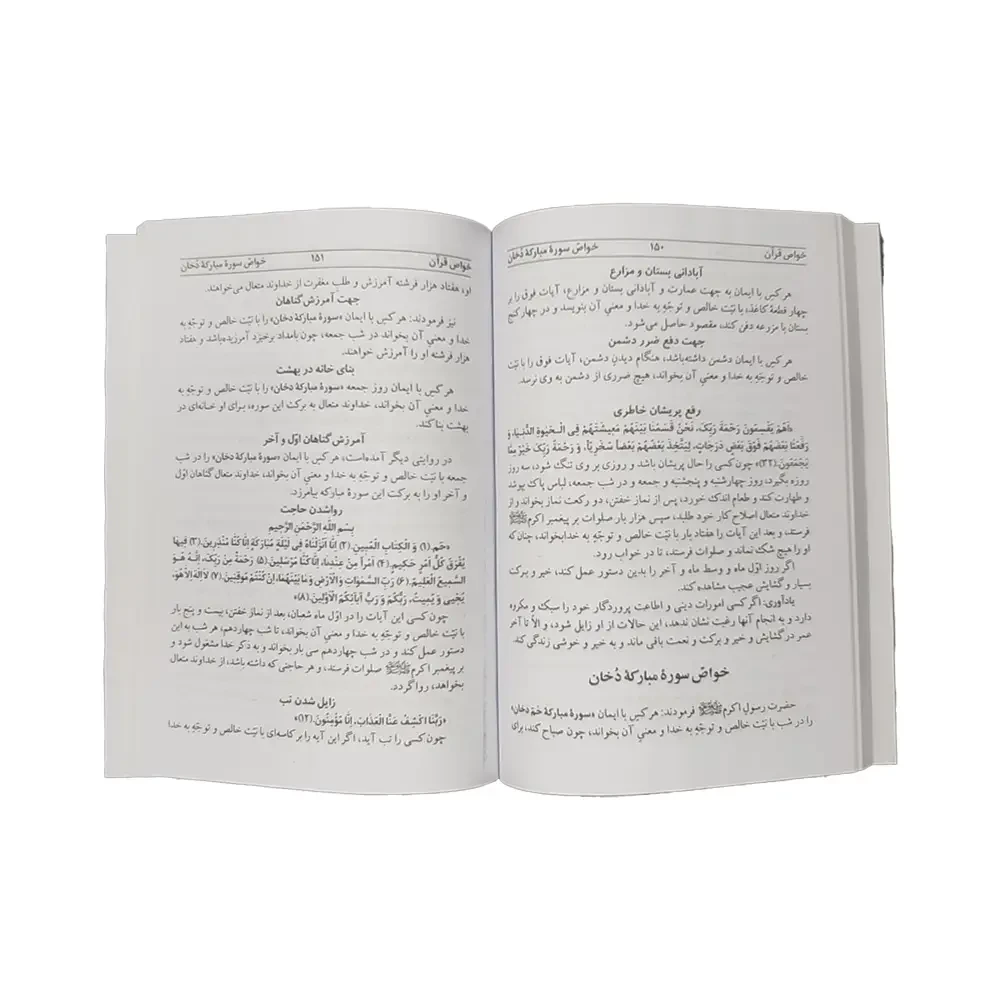 خواص قرآن ۱۵۰ خواصّ سورهٔ مبارکهٔ دُخان
آبادانی بستان و مزارع
هر کس با ایمان به جهت عمارت و آبادانی بستان و مزارع، آیات فوق را بر
چهار قطعهٔ کاغذ، با نیّت خالص و توجّه به خدا و معنی آن بنویسد و در چهار کنج
بستان یا مزرعه دفن کند، مقصود حاصل می‌شود.
جهت دفع ضرر دشمن
هر کس با ایمان دشمن داشته‌باشد، هنگام دیدنِ دشمن، آیات فوق را با نیّت
خالص و توجّه به خدا و معنیِ آن بخواند، هیچ ضرری از دشمن به وی نرسد.
رفع پریشان خاطری
«اَهُمْ یَقْسِمُونَ رَحْمَةَ رَبِّکَ، نَحْنُ قَسَمْنا بَیْنَهُمْ مَعیشَتَهُمْ فِی الْحَیوةِ الدُّنْیا، وَ
رَفَعْنا بَعْضَهُمْ فَوْقَ بَعْضٍ دَرَجاتٍ، لِیَتَّخِذَ بَعْضُهُمْ بَعْضاً سُخْرِیّاً، وَ رَحْمَةُ رَبِّکَ خَیْرٌ مِمّا
یَجْمَعُونَ.(۳۲)» چون کسی را حال پریشان باشد و روزی بر وی تنگ شود، سه روز
روزه بگیرد، روز چهارشنبه و پنجشنبه و جمعه و در شب جمعه، لباس پاک پوشد
و طهارت کند و طعام اندک خورد، پس از نماز خفتن، دو رکعت نماز بخواند و از
خداوند متعال اصلاح کار خود طلبد، سپس هزار بار صلوات بر پیغمبر اکرم ﷺ
فرستد، و بعد این آیات را هفتاد بار با نیّت خالص و توجّه به خدا بخواند، چنان که
او را هیچ شک نماند و صلوات فرستد، تا در خواب رود.
اگر روز اوّل ماه و وسط ماه و آخر را بدین دستور عمل کند، خیر و برکت
بسیار و گشایش عجیب مشاهده کند.
یادآوری: اگر کسی امورات دینی و اطاعت پروردگار خود را سبک و مکروه
دارد و به انجام آنها رغبت نشان ندهد، این حالات از او زایل شود، و الّا تا آخر
عمر در گشایش و خیر و برکت و نعمت باقی ماند و به خیر و خوشی زندگی کند.
خواصّ سورهٔ مبارکهٔ دُخان
حضرت رسول اکرم ﷺ فرمودند: هر کس با ایمان «سورهٔ مبارکهٔ حم دخان»
را در شب با نیّت خالص و توجّه به خدا و معنیِ آن بخواند، چون صباح کند، برای
خواص قرآن ۱۵۱ خواصّ سورهٔ مبارکهٔ دُخان
او، هفتاد هزار فرشته آمرزش و طلبِ مغفرت از خداوند متعال می‌خواهند.
جهت آمرزش گناهان
نیز فرمودند: هر کس با ایمان «سورهٔ مبارکهٔ دخان» را با نیّت خالص و توجّه به
خدا و معنیِ آن بخواند در شب جمعه، چون بامداد برخیزد آمرزیده‌باشد و هفتاد
هزار فرشته او را آمرزش خواهند.
بنای خانه در بهشت
هر کس با ایمان روز جمعه «سورهٔ مبارکهٔ دخان» را با نیّت خالص و توجّه به
خدا و معنیِ آن بخواند، خداوند متعال به برکت این سوره، برای او خانه‌ای در
بهشت بنا کند.
آمرزش گناهان اوّل و آخر
در روایتی دیگر آمده‌است، هر کس با ایمان «سورهٔ مبارکهٔ دخان» را در شب
جمعه با نیّت خالص و توجّه به خدا و معنیِ آن بخواند، خداوند متعال گناهان اوّل
و آخر او را به برکت این سورهٔ مبارکه بیامرزد.
روا شدن حاجت
بِسْمِ اللهِ الرَّحْمٰنِ الرَّحِیمِ
«حٰم.(۱) وَ الْکِتابِ الْمُبینِ.(۲) اِنّا اَنْزَلْناهُ فی لَیْلَةٍ مُبارَکَةٍ اِنّا کُنّا مُنْذِرینَ.(۳) فیها
یُفْرَقُ کُلُّ اَمْرٍ حَکیمٍ.(۴) اَمْراً مِنْ عِنْدِنا، اِنّا کُنّا مُرْسِلینَ.(۵) رَحْمَةً مِنْ رَبِّکَ، اِنَّهُ هُوَ
السَّمیعُ الْعَلیمُ.(۶) رَبِّ السَّمٰوٰاتِ وَ الْاَرْضِ وَ ما بَیْنَهُما، اِنْ کُنْتُمْ مُوقِنینَ.(۷) لا اِلٰهَ اِلّا هُوَ،
یُحْیی وَ یُمیتُ، رَبُّکُمْ وَ رَبُّ آبائِکُمُ الْاَوَّلینَ.(۸)»
چون کسی این آیات را در اوّل ماه شعبان، بعد از نماز خفتن، بیست و پنج بار
با نیّت خالص و توجّه به خدا و معنیِ آن بخواند، تا شب چهاردهم، هر شب به این
دستور عمل کند و در شب چهاردهم سی بار بخواند و به ذکر خدا مشغول شود و
بر پیغمبر اکرم ﷺ صلوات فرستد، و هر حاجتی که داشته باشد، از خداوند متعال
بخواهد، روا گردد.
زایل شدن تب
«رَبَّنَا اکْشِفْ عَنَّا الْعَذابَ، اِنّا مُؤْمِنُونَ.(۱۲)»
چون کسی را تب آید، اگر این آیه را بر کاسه‌ای با نیّت خالص و توجّه به خدا